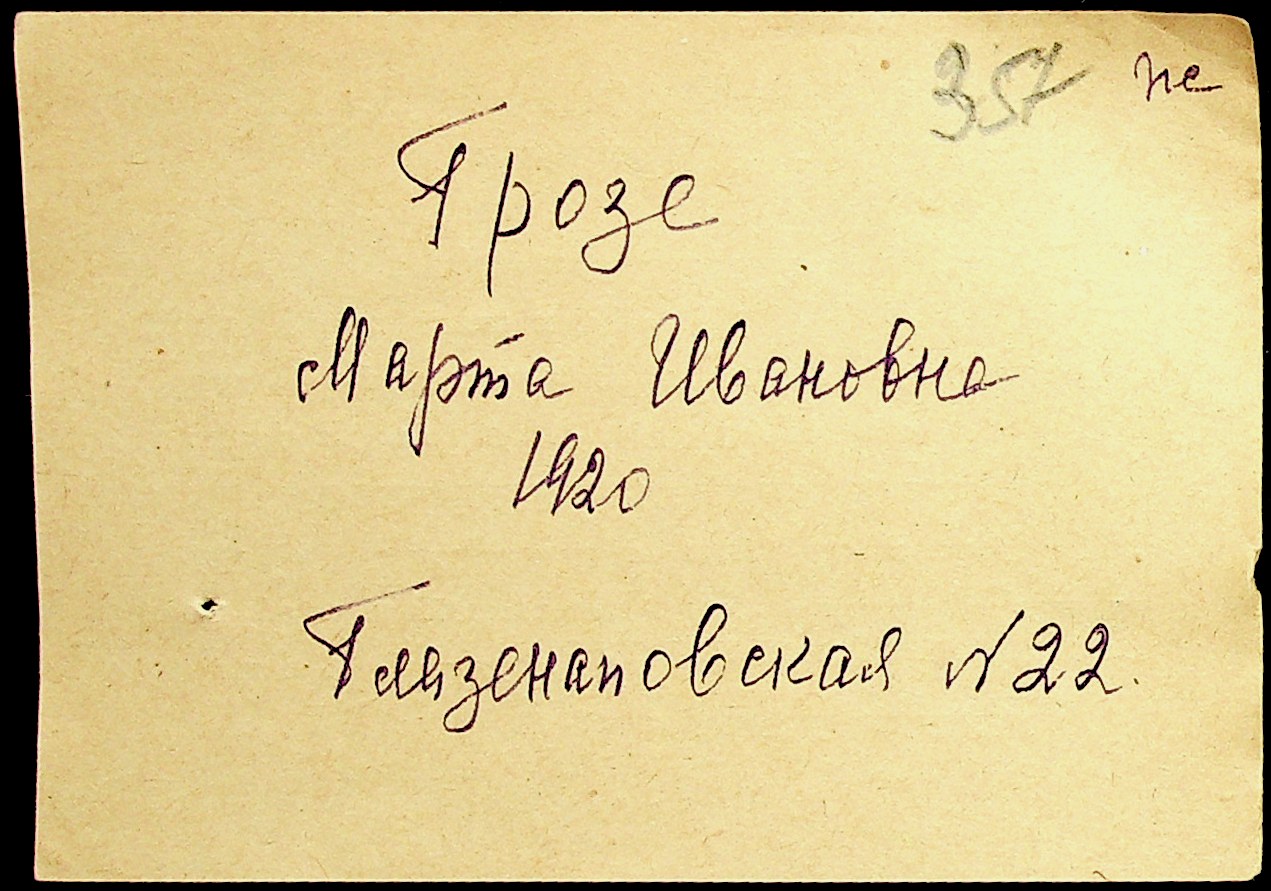 357 не
Грозе
Марта Ивановна
1920
Глазенаповская N 22.